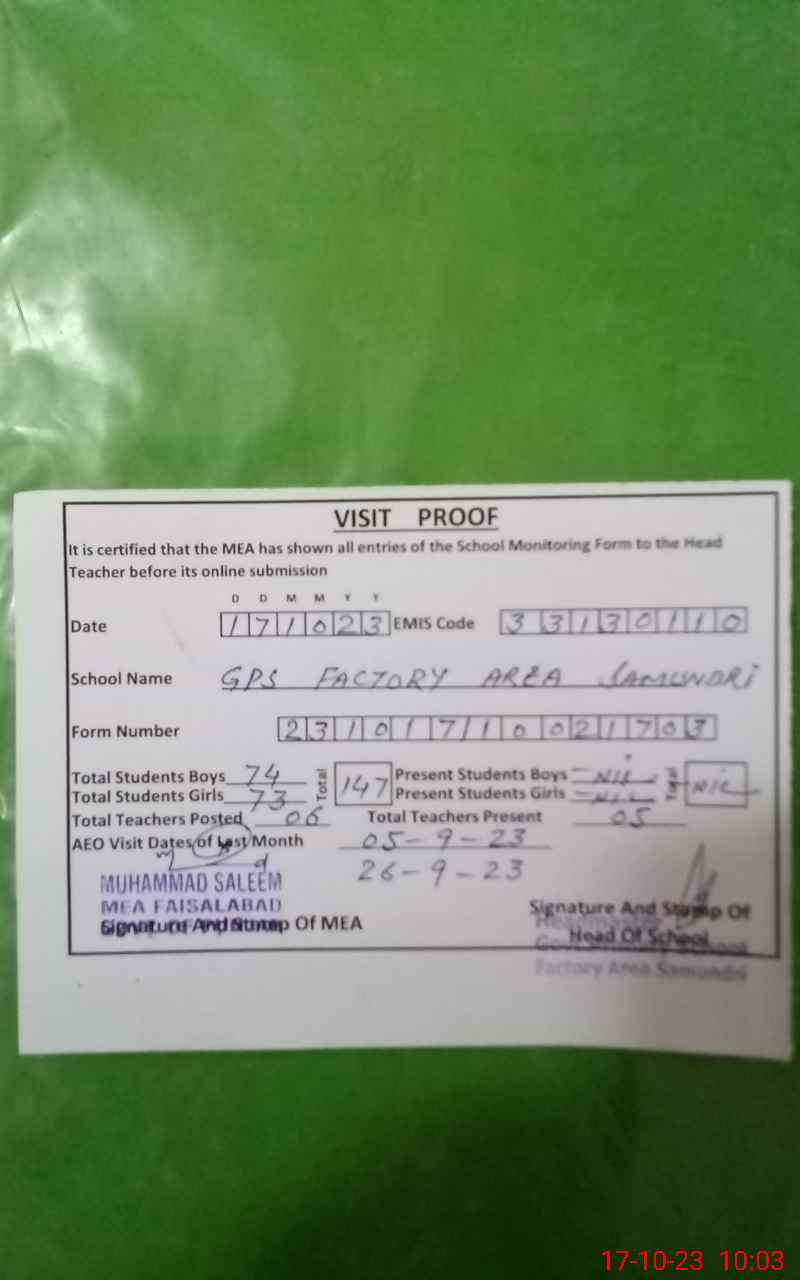 VISIT PROOF
It is certified that the MEA has shown all entries of the School Monitoring Form to the Head
Teacher before its online submission
D D M M Y Y
Date 171023 EMIS Code 33130110
School Name GPS FACTORY AREA SAMUNDRI
Form Number 23101710021703
Total Students Boys 74 Total 147 Present Students Boys = Nil Total Nil
Total Students Girls 73 Present Students Girls = Nil
Total Teachers Posted 06 Total Teachers Present 05
AEO Visit Dates of Last Month 05-9-23
26-9-23
MUHAMMAD SALEEM
MEA FAISALABAD
Signature And Stamp Of MEA
Signature And Stamp Of
Head Of School
Factory Area Samundri
17-10-23 10:03